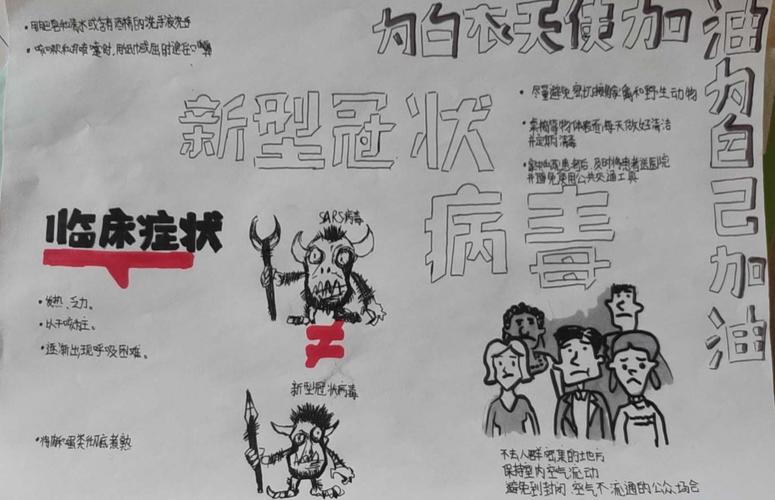 用肥皂和清水或含有酒精的洗手液洗手
咳嗽和打喷嚏时,用纸巾或屈肘遮住口鼻
为白衣天使加油
为自己加油
新型冠状
病毒
尽量避免密切接触家禽和野生动物
桌椅等物体表面每天做好清洁
并定期消毒
家中出现患者后,及时将患者送医院
并避免使用公共交通工具
临床症状
发热、乏力。
以干咳为主。
逐渐出现呼吸困难。
将肉和蛋类彻底煮熟
SARS病毒
≠
新型冠状病毒
不去人群密集的地方
保持室内空气流动
避免到封闭 空气不流通的公众场合